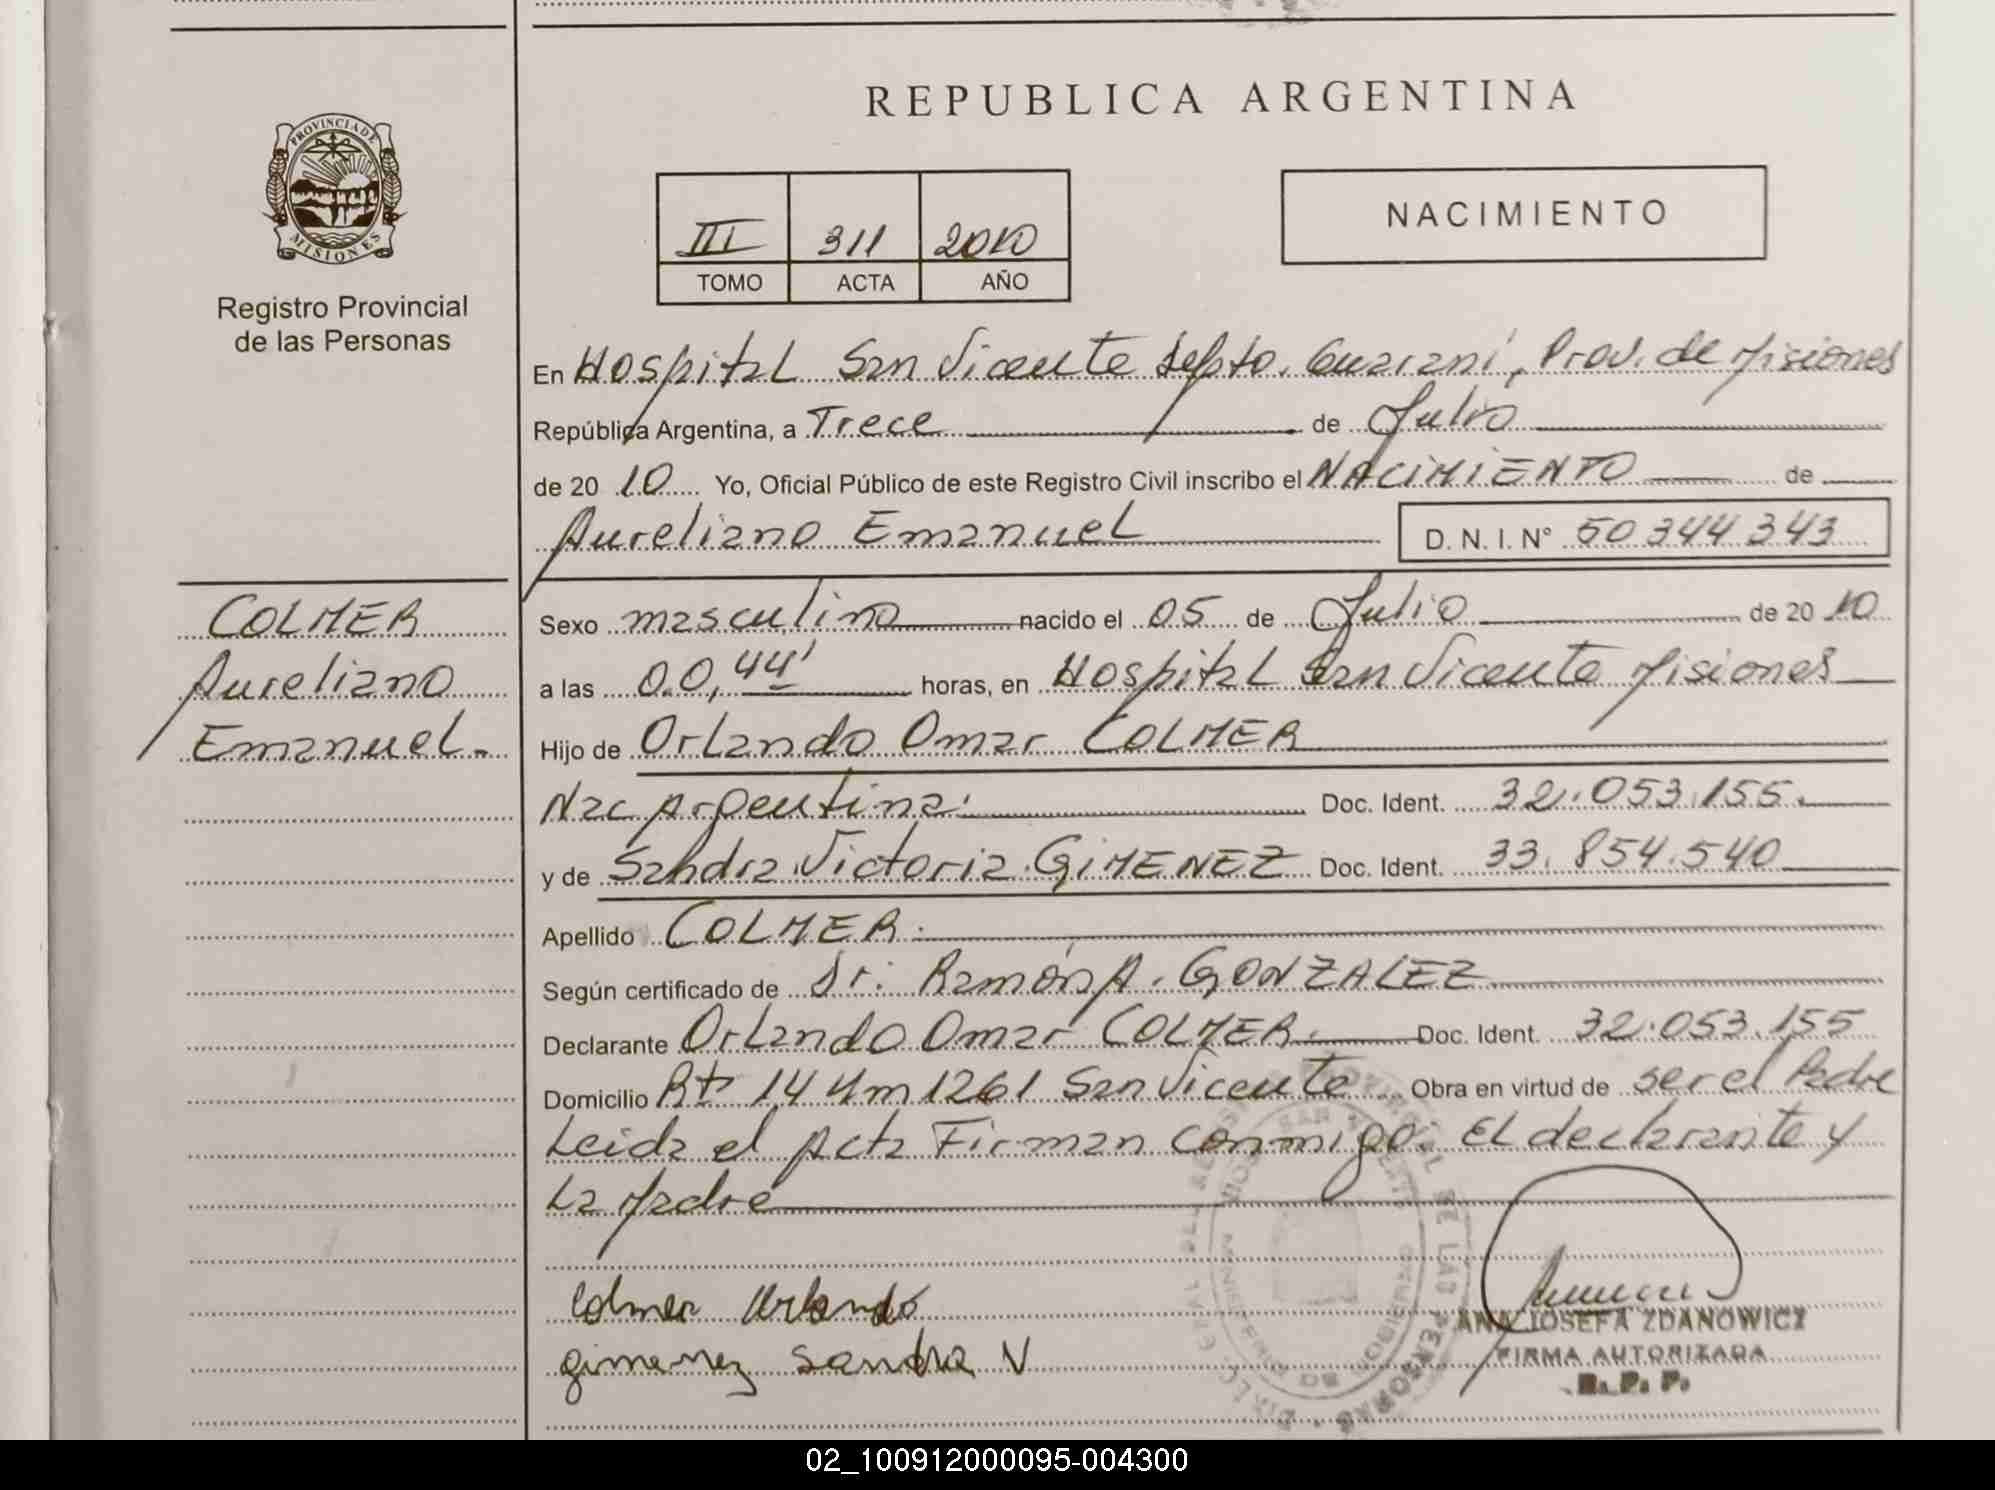 REPUBLICA ARGENTINA
PROVINCIA DE
MISIONES
Registro Provincial
de las Personas
III 311 2010
TOMO ACTA AÑO
NACIMIENTO
En Hospital San Vicente Depto. Guaraní, Prov. de Misiones
República Argentina, a Trece de Julio
de 20 10 Yo, Oficial Público de este Registro Civil inscribo el NACIMIENTO de
Aureliano Emanuel D. N. I. N° 50344343
COLMER
Aureliano
Emanuel.-
Sexo masculino nacido el 05 de Julio de 20 10
a las 00,44' horas, en Hospital San Vicente Misiones
Hijo de Orlando Omar COLMER
Nac Argentina. Doc. Ident. 32.053.155.
y de Sandra Victoria GIMENEZ Doc. Ident. 33.854.540
Apellido COLMER.
Según certificado de Dr. Ramón A. GONZALEZ
Declarante Orlando Omar COLMER. Doc. Ident. 32.053.155
Domicilio Rta 14 Km 1261 San Vicente Obra en virtud de ser el Padre
Leida el Acta Firman conmigo: El declarante y
La Madre
Colmer Orlando
gimenez Sandra V
ANA JOSEFA ZDANOWICZ
FIRMA AUTORIZADA
R. P. P.
02_100912000095-004300